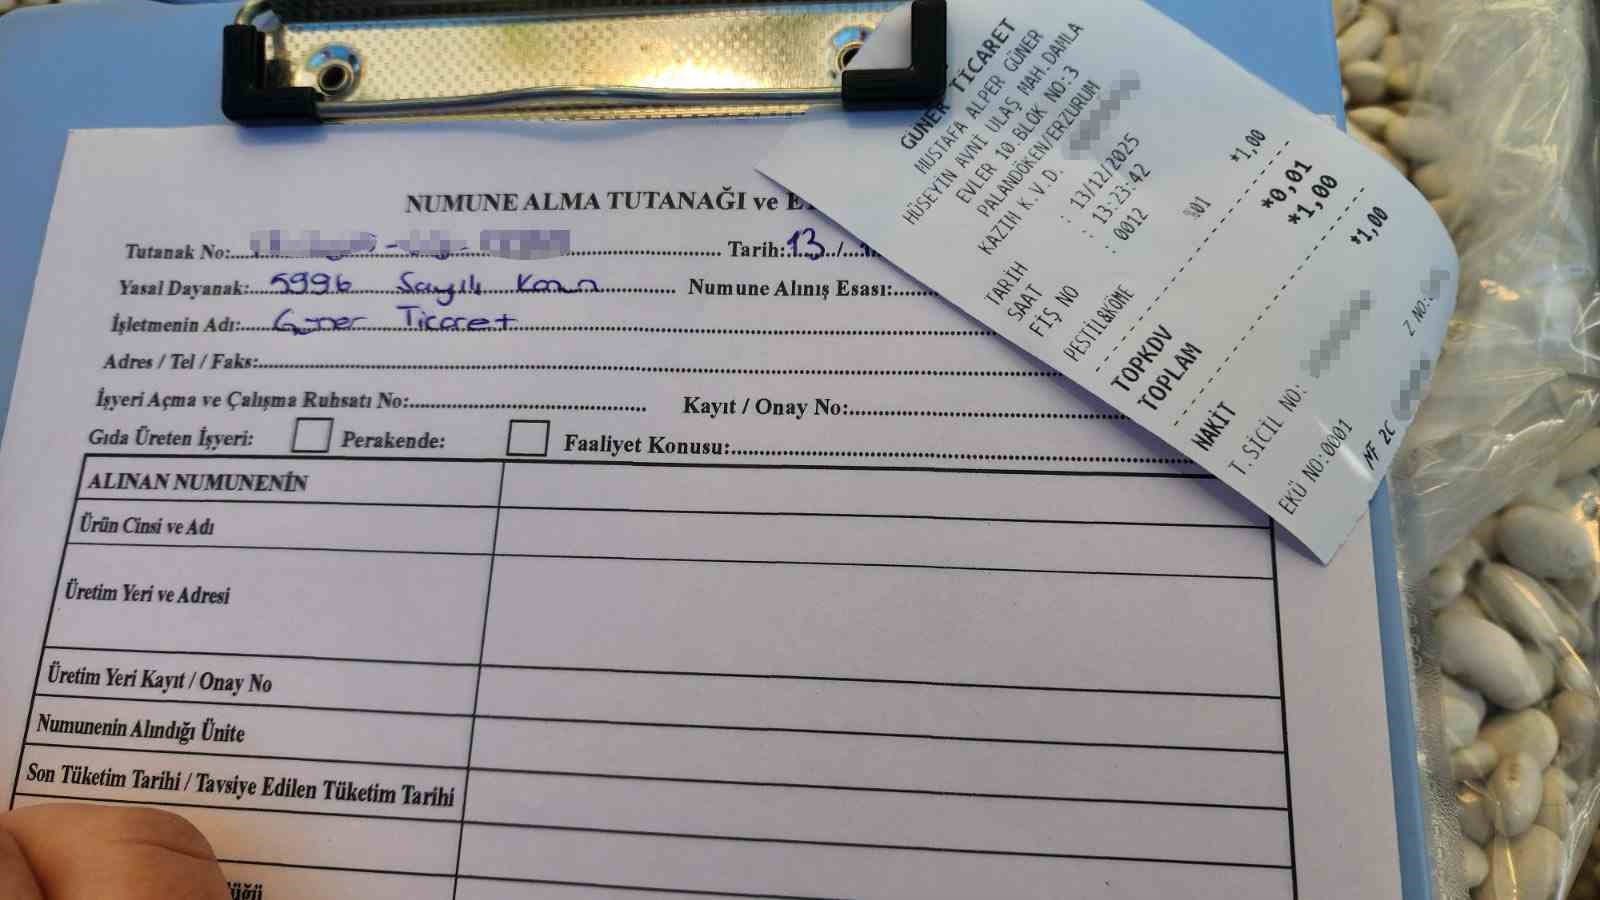 NUMUNE ALMA TUTANAĞI ve
Tutanak No: Tarih: 13
Yasal Dayanak: 5996 Sayılı Kanun Numune Alınış Esası:
İşletmenin Adı: Güner Ticaret
Adres / Tel / Faks:
İşyeri Açma ve Çalışma Ruhsatı No: Kayıt / Onay No:
Gıda Üreten İşyeri: Perakende: Faaliyet Konusu:
ALINAN NUMUNENİN
Ürün Cinsi ve Adı
Üretim Yeri ve Adresi
Üretim Yeri Kayıt / Onay No
Numunenin Alındığı Ünite
Son Tüketim Tarihi / Tavsiye Edilen Tüketim Tarihi
GÜNER TİCARET
MUSTAFA ALPER GÜNER
HÜSEYİN AVNİ ULAŞ MAH.DAMLA
EVLER 10.BLOK NO:3
PALANDÖKEN/ERZURUM
KAZIM K.V.D.
TARİH : 13/12/2025
SAAT : 13:23:42
FİŞ NO : 0012
PESTİL&KÖME %01 *1,00
TOPKDV *0,01
TOPLAM *1,00
NAKİT *1,00
T.SİCİL NO:
EKÜ NO:0001 Z NO:
MF 2C